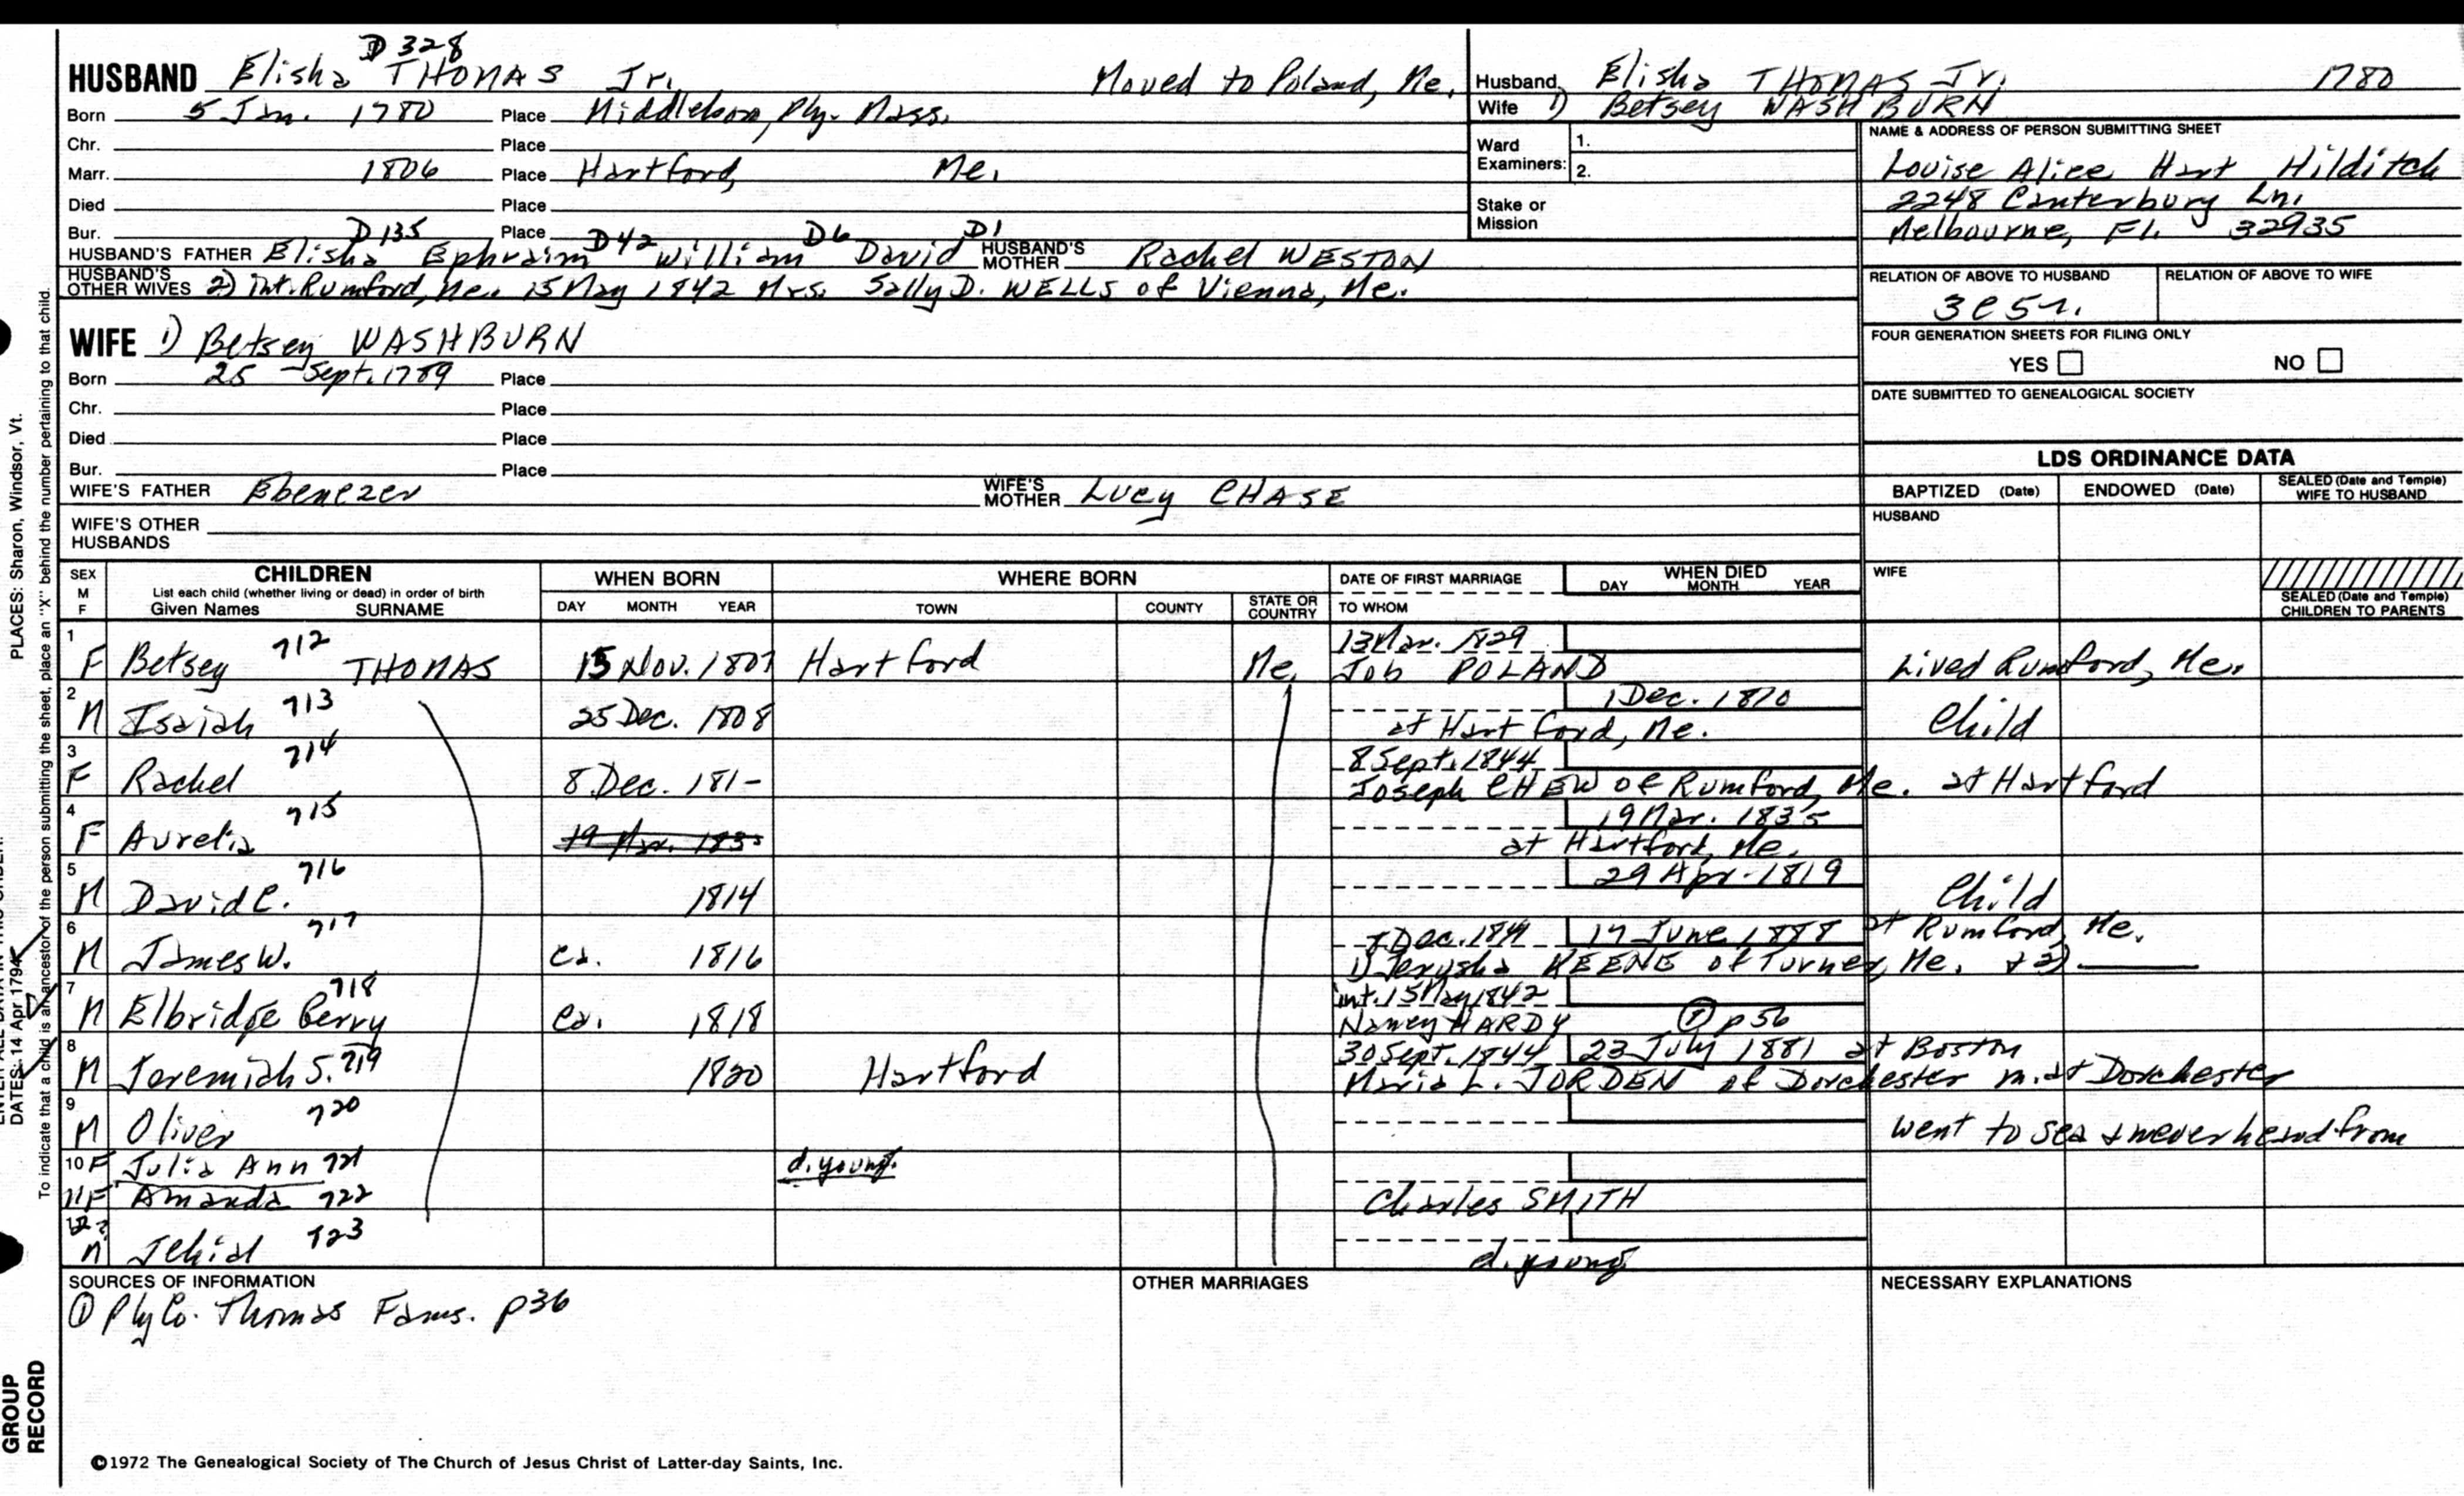 D328
HUSBAND Elisha THOMAS Jr. Moved to Poland, Me.
Born 5 Jan. 1780 Place Middleboro, Ply. Mass.
Chr. Place
Marr. 1806 Place Hartford, Me.
Died Place
Bur. Place
D135 D42 D6 D1
HUSBAND'S FATHER Elisha Ephraim William David HUSBAND'S MOTHER Rachel WESTON
HUSBAND'S OTHER WIVES 2) Int. Rumford, Me. 15 May 1842 Mrs. Sally D. WELLS of Vienna, Me.
WIFE 1) Betsey WASHBURN
Born 25 Sept. 1789 Place
Chr. Place
Died Place
Bur. Place
WIFE'S FATHER Ebenezer WIFE'S MOTHER Lucy CHASE
WIFE'S OTHER HUSBANDS
Husband Elisha THOMAS Jr. 1780
Wife 1) Betsey WASHBURN
Ward Examiners: 1.
2.
Stake or Mission
NAME & ADDRESS OF PERSON SUBMITTING SHEET
Louise Alice Hart Hilditch
2248 Canterbury Ln.
Melbourne, Fl. 32935
RELATION OF ABOVE TO HUSBAND RELATION OF ABOVE TO WIFE
3c5r.
FOUR GENERATION SHEETS FOR FILING ONLY
YES NO
DATE SUBMITTED TO GENEALOGICAL SOCIETY
LDS ORDINANCE DATA
BAPTIZED (Date) ENDOWED (Date) SEALED (Date and Temple) WIFE TO HUSBAND
HUSBAND
WIFE
SEALED (Date and Temple) CHILDREN TO PARENTS
SEX M F
CHILDREN
List each child (whether living or dead) in order of birth
Given Names SURNAME
WHEN BORN
DAY MONTH YEAR
WHERE BORN
TOWN COUNTY STATE OR COUNTRY
DATE OF FIRST MARRIAGE
TO WHOM
WHEN DIED
DAY MONTH YEAR
1 712 13 Mar. 1829
F Betsey THOMAS 15 Nov. 1807 Hartford Me. Job POLAND Lived Rumford, Me.
2 713 1 Dec. 1810
M Isaiah 25 Dec. 1808 at Hartford, Me. Child
3 714 8 Sept. 1844
F Rachel 8 Dec. 181- Joseph CHEW of Rumford, Me. at Hartford
4 715 19 Mar. 1835
F Aurelia 19 Mar. 1835 at Hartford, Me.
5 716 29 Apr. 1819
M David C. 1814 Child
6 717 Dec. 1841 17 June 1888 at Rumford, Me.
M James W. ca. 1816 1) Jerusha KEENE of Turner, Me. + 2)
7 718 int. 15 May 1842
M Elbridge Berry ca. 1818 Nancy HARDY p56
8 719 30 Sept. 1844 23 July 1881 at Boston
M Jeremiah S. 1820 Hartford Maria L. JORDEN of Dorchester m. at Dorchester
9 720
M Oliver went to sea & never heard from
10 F Julia Ann 721 d. young.
11 F Amanda 722 Charles SMITH
12 ?
M Jehial 723 d. young
SOURCES OF INFORMATION
① Ply Co. Thomas Fams. p36
OTHER MARRIAGES
NECESSARY EXPLANATIONS
©1972 The Genealogical Society of The Church of Jesus Christ of Latter-day Saints, Inc.
PLACES: Sharon, Windsor, Vt.
DATES: 14 Apr 1794
To indicate that a child is an ancestor of the person submitting the sheet, place an "X" behind the number pertaining to that child.
GROUP
RECORD